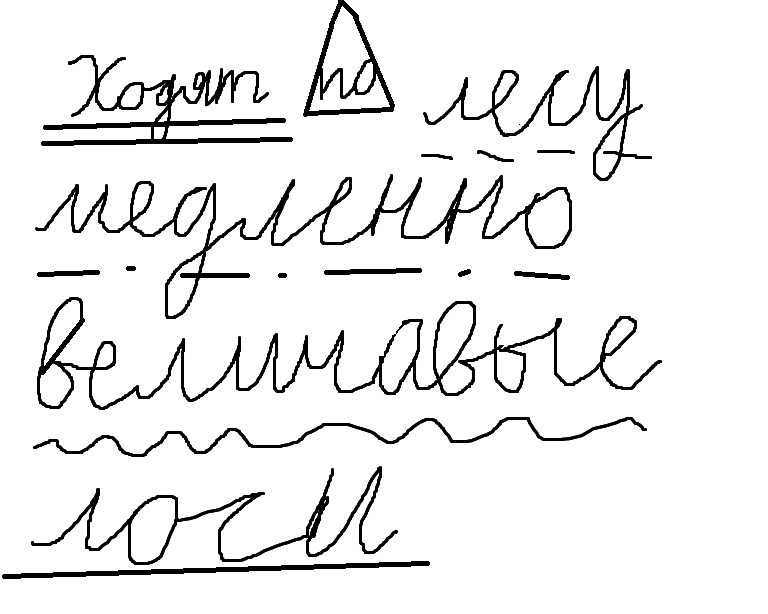 Ходят по лесу
медленно
величавые
лоси